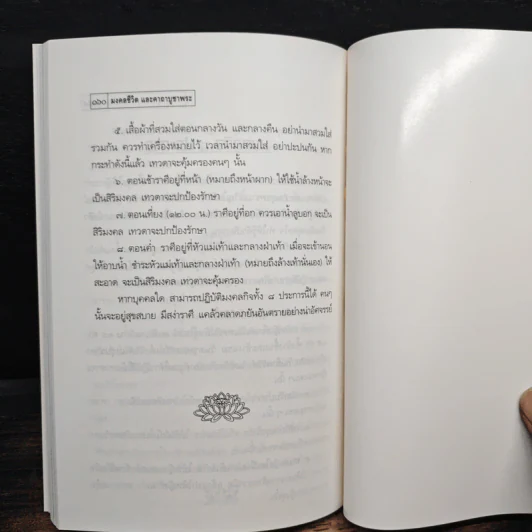 ๑๖๐ มงคลชีวิต และคาถาบูชาพระ
๕. เสื้อผ้าที่สวมใส่ตอนกลางวัน และกลางคืน อย่านำมาสวมใส่
รวมกัน ควรทำเครื่องหมายไว้ เวลานำมาสวมใส่ อย่าปะปนกัน หาก
กระทำดังนี้แล้ว เทวดาจะคุ้มครองคนๆ นั้น
๖. ตอนเช้าราศีอยู่ที่หน้า (หมายถึงหน้าผาก) ให้ใช้น้ำล้างหน้าจะ
เป็นสิริมงคล เทวดาจะปกป้องรักษา
๗. ตอนเที่ยง (๑๒.๐๐ น.) ราศีอยู่ที่อก ควรเอาน้ำลูบอก จะเป็น
สิริมงคล เทวดาจะปกป้องรักษา
๘. ตอนค่ำ ราศีอยู่ที่หัวแม่เท้าและกลางฝ่าเท้า เมื่อจะเข้านอน
ให้อาบน้ำ ชำระหัวแม่เท้าและกลางฝ่าเท้า (หมายถึงล้างเท้านั่นเอง) ให้
สะอาด จะเป็นสิริมงคล เทวดาจะคุ้มครอง
หากบุคคลใด สามารถปฏิบัติมงคลกิจทั้ง ๘ ประการนี้ได้ คนๆ
นั้นจะอยู่สุขสบาย มีสง่าราศี แคล้วคลาดภยันอันตรายอย่างน่าอัศจรรย์